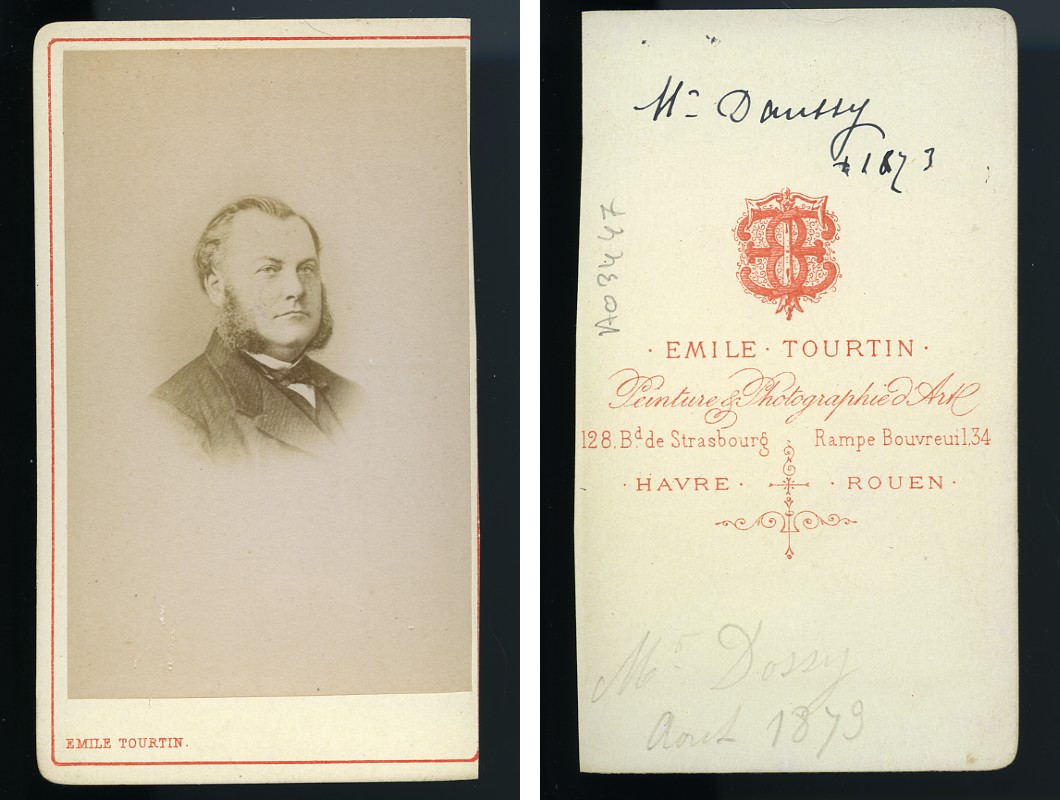 EMILE TOURTIN.
Mr Daussy
+ 1873
A03447
· EMILE · TOURTIN ·
Peinture & Photographie d'Art
128. Bd de Strasbourg Rampe Bouvreuil, 34
· HAVRE · · ROUEN ·
Mr Dossy
Aout 1873